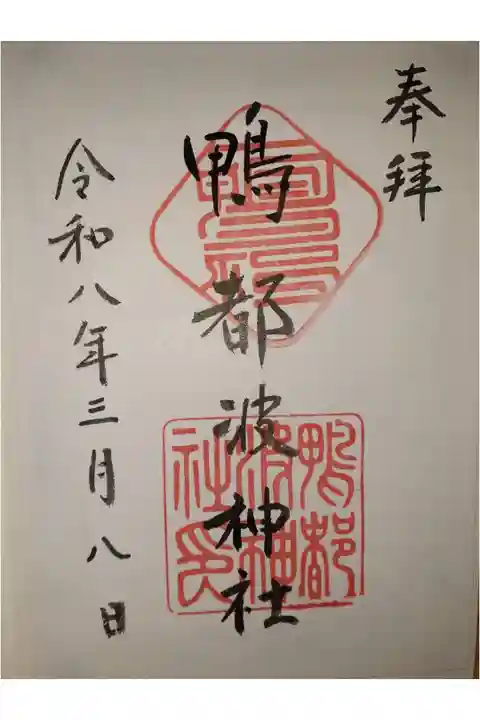 奉拝
鴨都波神社
鴨都波神社印
令和八年三月八日